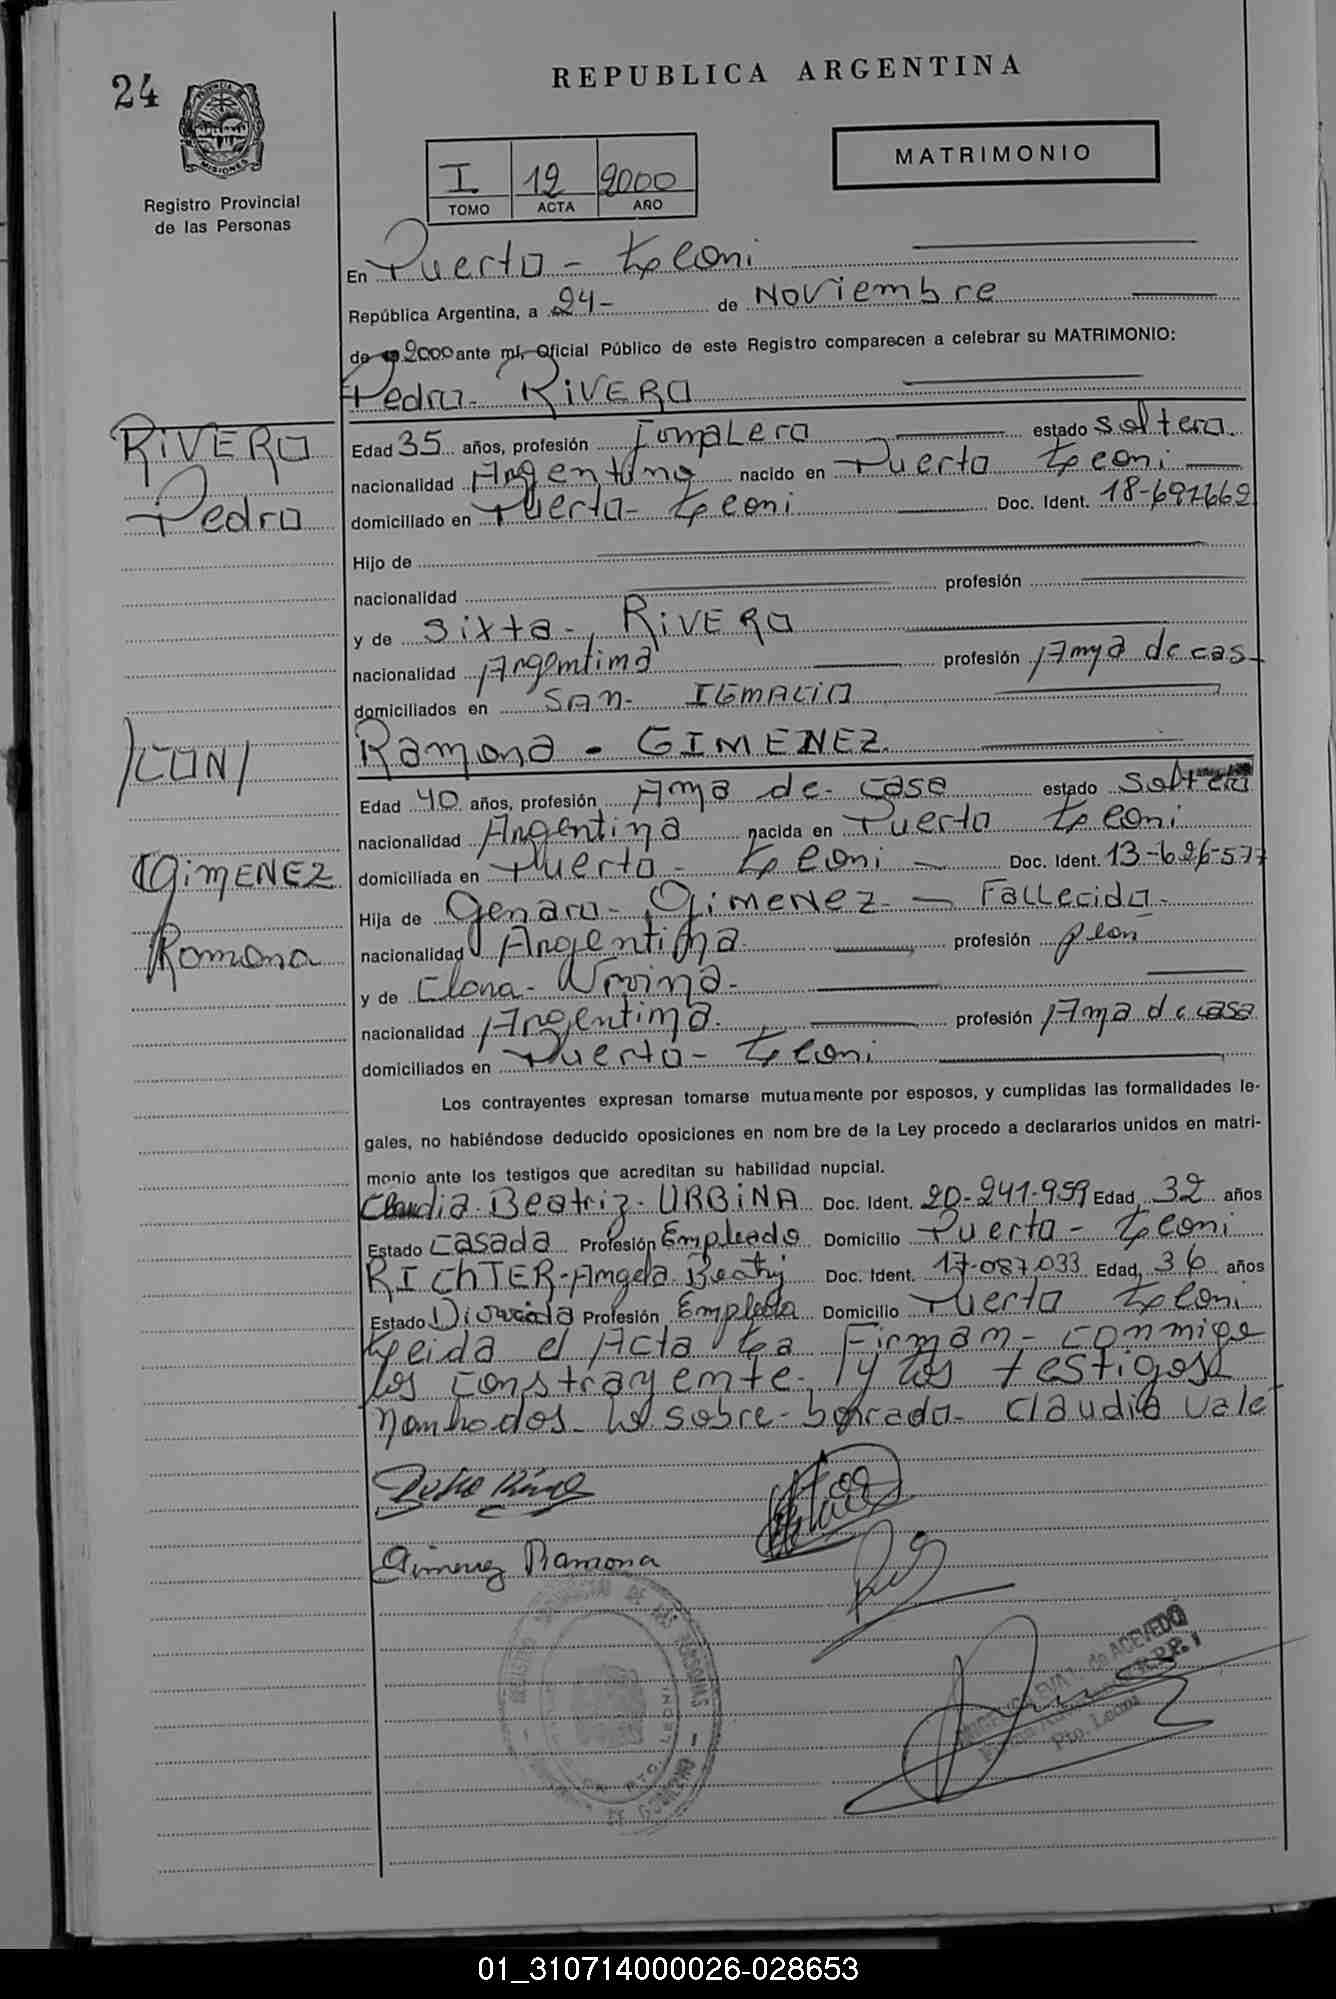 REPUBLICA ARGENTINA
24
PROVINCIA DE MISIONES
Registro Provincial
de las Personas
MATRIMONIO
I 12 2000
TOMO ACTA AÑO
En Puerto - Leoni
República Argentina, a 24- de Noviembre
de 19 2000 ante mí, Oficial Público de este Registro comparecen a celebrar su MATRIMONIO:
Pedro - RiVERO
RiVERO
Pedro
Edad 35 años, profesión Jornalero estado Soltero
nacionalidad Argentino nacido en Puerto Leoni
domiciliado en Puerto - Leoni Doc. Ident. 18-697662
Hijo de
nacionalidad profesión
y de Sixta - RiVERO
nacionalidad Argentina profesión Ama de cas
domiciliados en SAN - IGNACIO
/CON/
Ramona - GIMENEZ
Edad 40 años, profesión Ama de casa estado Soltera
nacionalidad Argentina nacida en Puerto Leoni
GiMENEZ
Ramona
domiciliada en Puerto - Leoni Doc. Ident. 13-626-577
Hija de Genaro - GiMENEZ - Fallecido -
nacionalidad Argentina profesión peon
y de Clara -
nacionalidad Argentina profesión Ama de casa
domiciliados en Puerto - Leoni
Los contrayentes expresan tomarse mutuamente por esposos, y cumplidas las formalidades le-
gales, no habiéndose deducido oposiciones en nom bre de la Ley procedo a declararlos unidos en matri-
monio ante los testigos que acreditan su habilidad nupcial.
Claudia Beatriz - URBiNA Doc. Ident. 20-241-959 Edad 32 años
Estado Casada Profesión Empleado Domicilio Puerto - Leoni
RIChTER - Angela Beatriz Doc. Ident. 17-087,033 Edad 36 años
Estado Divorciada Profesión Empleada Domicilio Puerto Leoni
Leida el Acta La Firman - conmigo
los constrayente y los testigos
nombrados - Lo sobre - borrado - Claudia Vale
Gimenez Ramona
EVA de ACEVEDO
Pto. Leoni
01_310714000026-028653